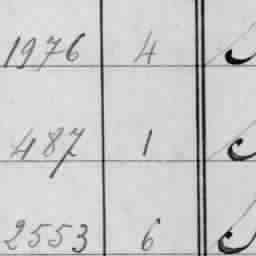 1976 4
487 1
2553 6